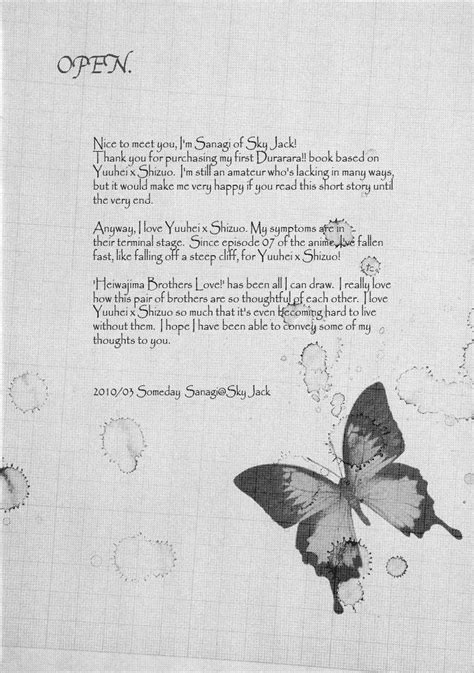 OPEN.
Nice to meet you, I'm Sanagi of Sky Jack!
Thank you for purchasing my first Durarara!! book based on
Yuuhei x Shizuo. I'm still an amateur who's lacking in many ways,
but it would make me very happy if you read this short story until
the very end.
Anyway, I love Yuuhei x Shizuo. My symptoms are in
their terminal stage. Since episode 07 of the anime, I've fallen
fast, like falling off a steep cliff, for Yuuhei x Shizuo!
'Heiwajima Brothers Love!' has been all I can draw. I really love
how this pair of brothers are so thoughtful of each other. I love
Yuuhei x Shizuo so much that it's even becoming hard to live
without them. I hope I have been able to convey some of my
thoughts to you.
2010/03 Someday Sanagi@Sky Jack